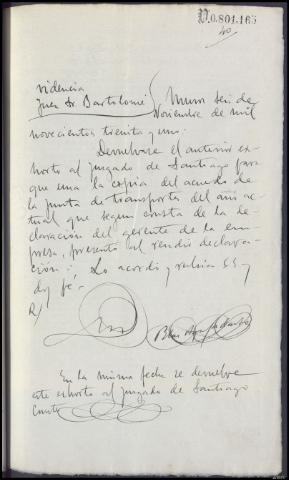 D.0.801.165
40
videncia
Juez Sr. Bartolomé Muros seis de
Noviembre de mil
novecientos treinta y uno.
Devuelvase el anterior ex-
horto al juzgado de Santiago para
que una la copia del acuerdo de
la junta de transportes del año ac-
tual que segun consta de la de-
claración del gerente de la em-
presa, presentó al rendir declara-
ción. Lo acordó y rubrica SS
doy fe.
R/
En la misma fecha se devuelve
este exhorto al juzgado de Santiago